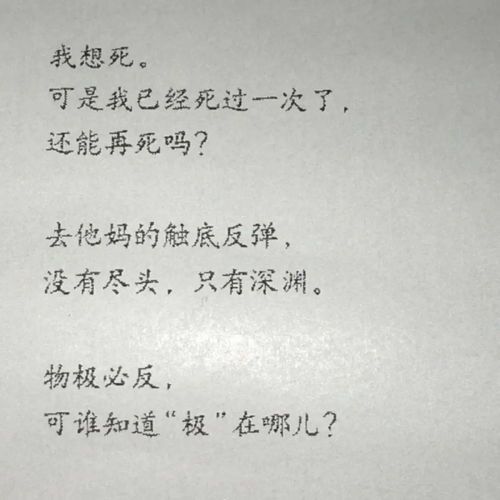 我想死。
可是我已经死过一次了，
还能再死吗？
去他妈的触底反弹，
没有尽头，只有深渊。
物极必反，
可谁知道“极”在哪儿？